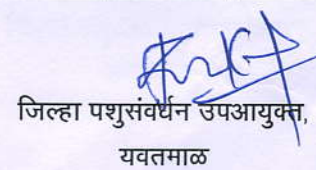 जिल्हा पशुसंवर्धन उपआयुक्त,
यवतमाळ